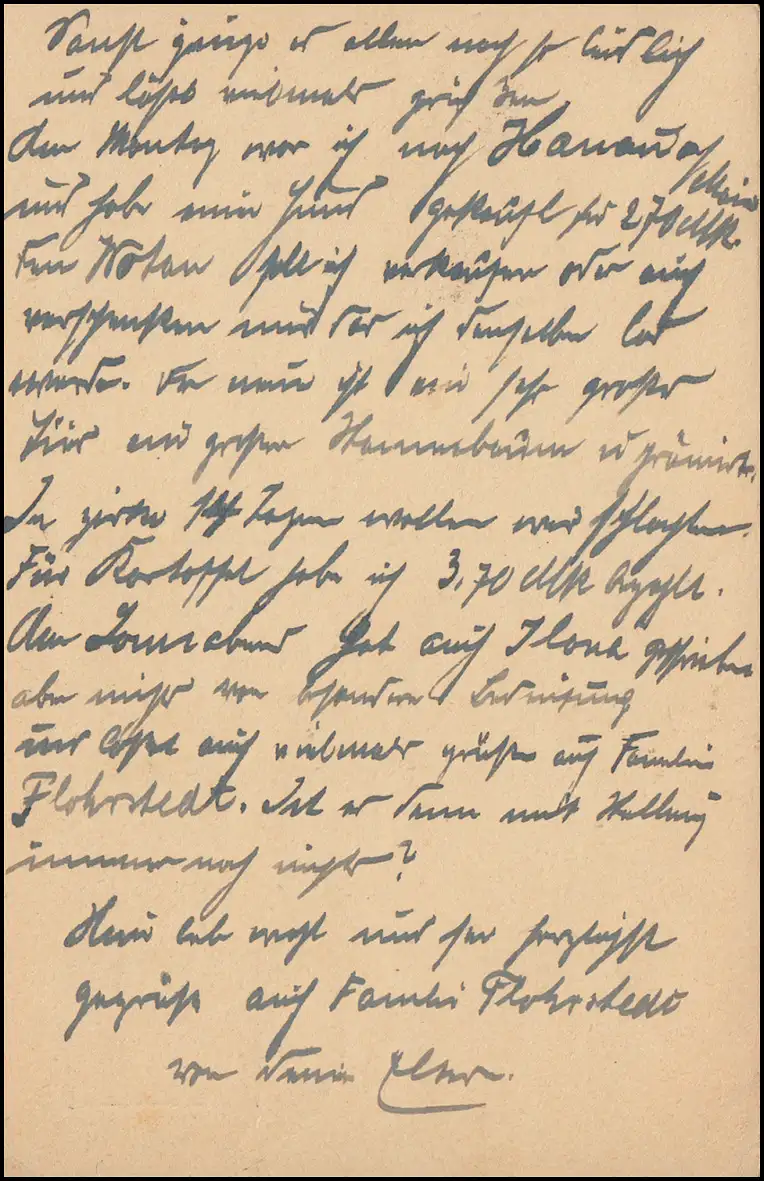 Sonst ginge es allen noch so leidlich
und läßt vielmals grüßen
Am Montag war ich nach Hanau a/Main
und habe einen Hund gekauft für 270 Mk.
Den Wotan will ich verkaufen oder auch
verschenken nur das ich denselben los
werde. Der neue ist ein sehr großes
Tier ein großer Stammbaum u prämiert.
In zirka 14 Tagen wollen wir schlachten.
Für Kartoffel habe ich 3,70 Mk bezahlt.
Am Sonnabend hat auch Ilona geschrieben
aber nichts von besonderer Bedeutung
und läßt auch vielmals grüßen auch Familie
Flohrstedt. Ist es denn mit Stellung
immer noch nichts?
Nun leb wohl und sei herzlichst
gegrüßt auch Familie Flohrstedt
von deinen Eltern.